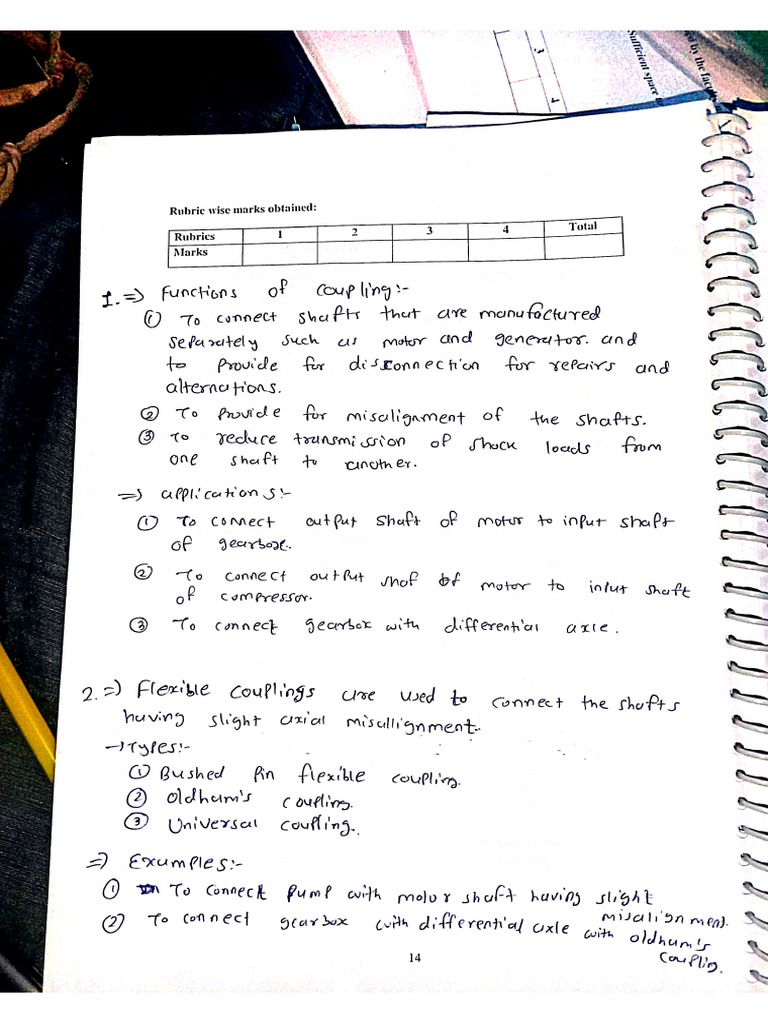 Sufficient space
ed by the fac
3
4
Rubric wise marks obtained:
Rubrics 1 2 3 4 Total
Marks
1. => Functions of coupling:-
① To connect shafts that are manufactured
separately such as motor and generator. and
to provide for disconnection for repairs and
alternations.
② To provide for misalignment of the shafts.
③ To reduce transmission of shock loads from
one shaft to another.
=> applications:-
① To connect output shaft of motor to input shaft
of gearbox.
② To connect output shaf of motor to input shaft
of compressor.
③ To connect gearbox with differential axle.
2. => Flexible couplings are used to connect the shafts
having slight axial misallignment.
→ Types:-
① Bushed pin flexible coupling.
② Oldham's coupling.
③ Universal coupling.
=> Examples:-
① To connect pump with motor shaft having slight
misalignment.
② To connect gearbox with differential axle with oldham's
couplin.
14